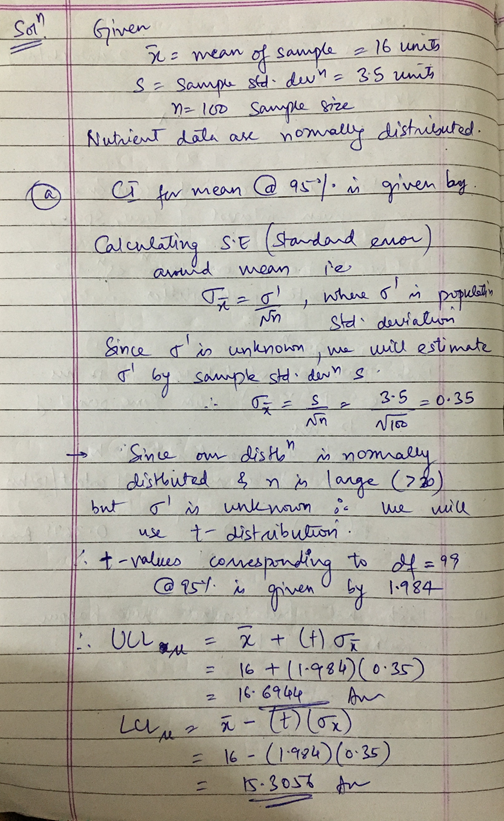 Solⁿ. Given
x̄ = mean of sample = 16 units
s = sample std. devⁿ = 3.5 units
n = 100 sample size
Nutrient data are normally distributed.
(a) CI for mean @ 95% is given by.
Calculating S.E (Standard error)
around mean i.e
σx̄ = σ'/√n , where σ' is population
std. deviation
Since σ' is unknown, we will estimate
σ' by sample std. devⁿ s.
∴ σx̄ = s/√n = 3.5/√100 = 0.35
→ Since our distbⁿ is normally
distbuted & n is large (>30)
but σ' is unknown ∴ we will
use t-distribution.
∴ t-values corresponding to df = 99
@ 95% is given by 1.984
∴ UCL μ = x̄ + (t) σx̄
= 16 + (1.984)(0.35)
= 16.6944 Ans
LCL μ = x̄ - (t)(σx)
= 16 - (1.984)(0.35)
= 15.3056 Ans